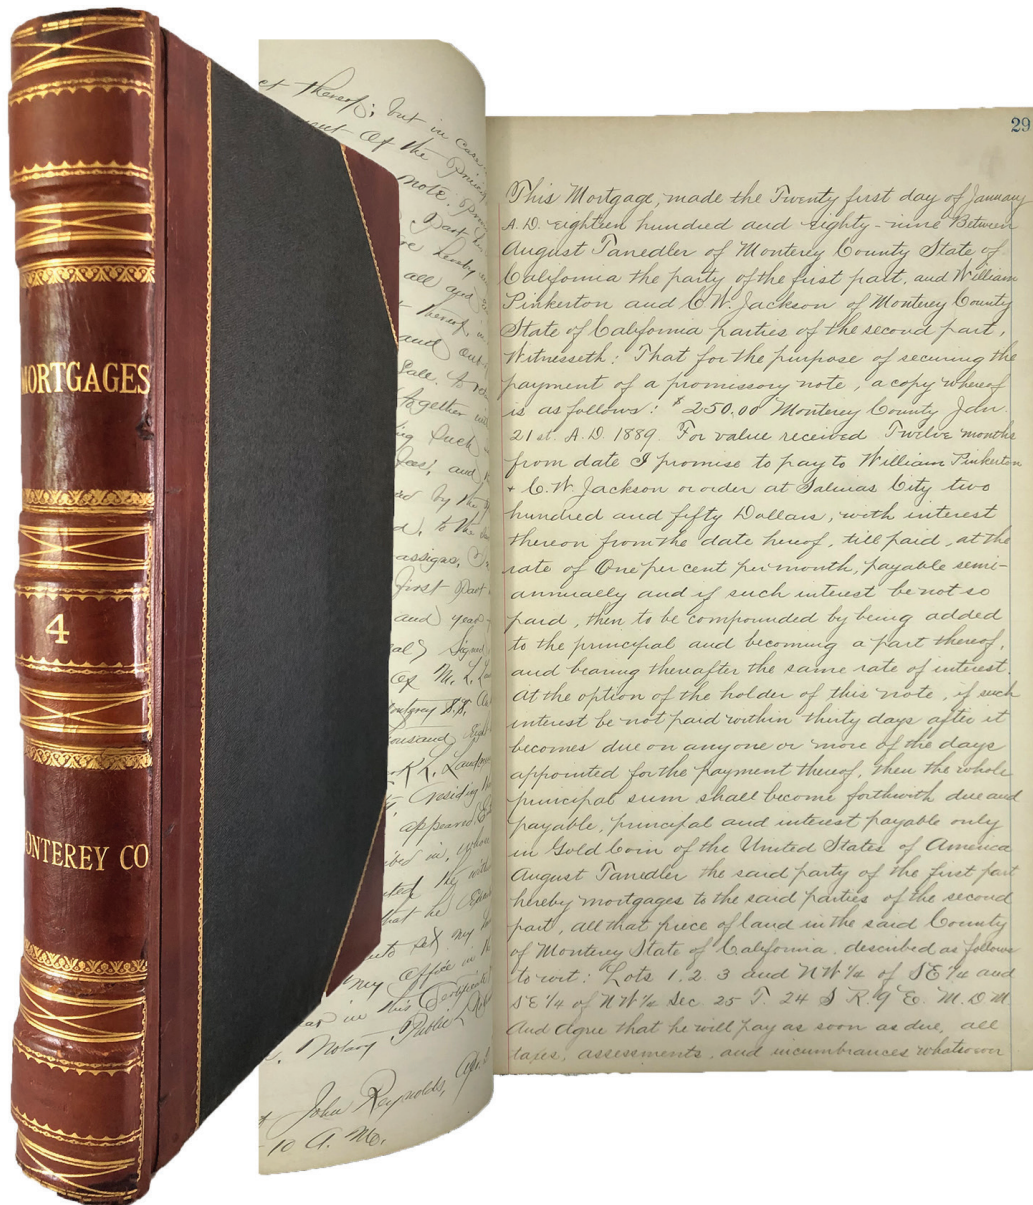 MORTGAGES
4
ONTEREY CO
thereof; but in case
of the Princip
note,
Part
hereby
all and
thereof
and out
Sale, to
together wit
such
fees; and
by the
to the
assigns,
first Part
and year
Signed
of M. L.
ousand
K. Landrum
residing
appeared
in, whom
the with
that he
set my
my Office in
in this Certificate
Notary Public
John Reynolds,
10 A. M.
29
This Mortgage, made the Twenty first day of January
A.D. eighteen hundred and eighty-nine Between
August Tanedler of Monterey County State of
California the party of the first part, and William
Pinkerton and C.W. Jackson of Monterey County
State of California parties of the second part,
Witnesseth: That for the purpose of securing the
payment of a promissory note, a copy whereof
is as follows: $250.00 Monterey County Jan.
21st. A.D. 1889. For value received Twelve months
from date I promise to pay to William Pinkerton
+ C.W. Jackson or order at Salinas City two
hundred and fifty Dollars, with interest
thereon from the date hereof, till paid, at the
rate of One per cent per month, payable semi-
annually and if such interest be not so
paid, then to be compounded by being added
to the principal and becoming a part thereof,
and bearing thereafter the same rate of interest.
At the option of the holder of this note, if such
interest be not paid within thirty days after it
becomes due on anyone or more of the days
appointed for the payment thereof, then the whole
principal sum shall become forthwith due and
payable, principal and interest payable only
in Gold Coin of the United States of America
August Tanedler the said party of the first part
hereby mortgages to the said parties of the second
part, all that piece of land in the said County
of Monterey State of California. described as follows
to wit: Lots 1, 2 3 and NW 1/4 of SE 1/4 and
SE 1/4 of NW 1/4 Sec. 25 T. 24 S R. 9 E. M. D M.
And agree that he will pay as soon as due, all
taxes, assessments, and incumbrances whatsoever